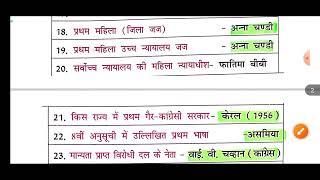 18. प्रथम महिला (जिला जज) - अन्ना चण्डी
19. प्रथम महिला उच्च न्यायालय जज - अन्ना चण्डी
20. सर्वोच्च न्यायालय की महिला न्यायाधीश- फातिमा बीवी
2
21. किस राज्य में प्रथम गैर-कांग्रेसी सरकार- केरल (1956)
22. 8वीं अनुसूची में उल्लिखित प्रथम भाषा - असमिया
23. मान्यता प्राप्त विरोधी दल के नेता - वाई. वी. चव्हान (कांग्रेस)